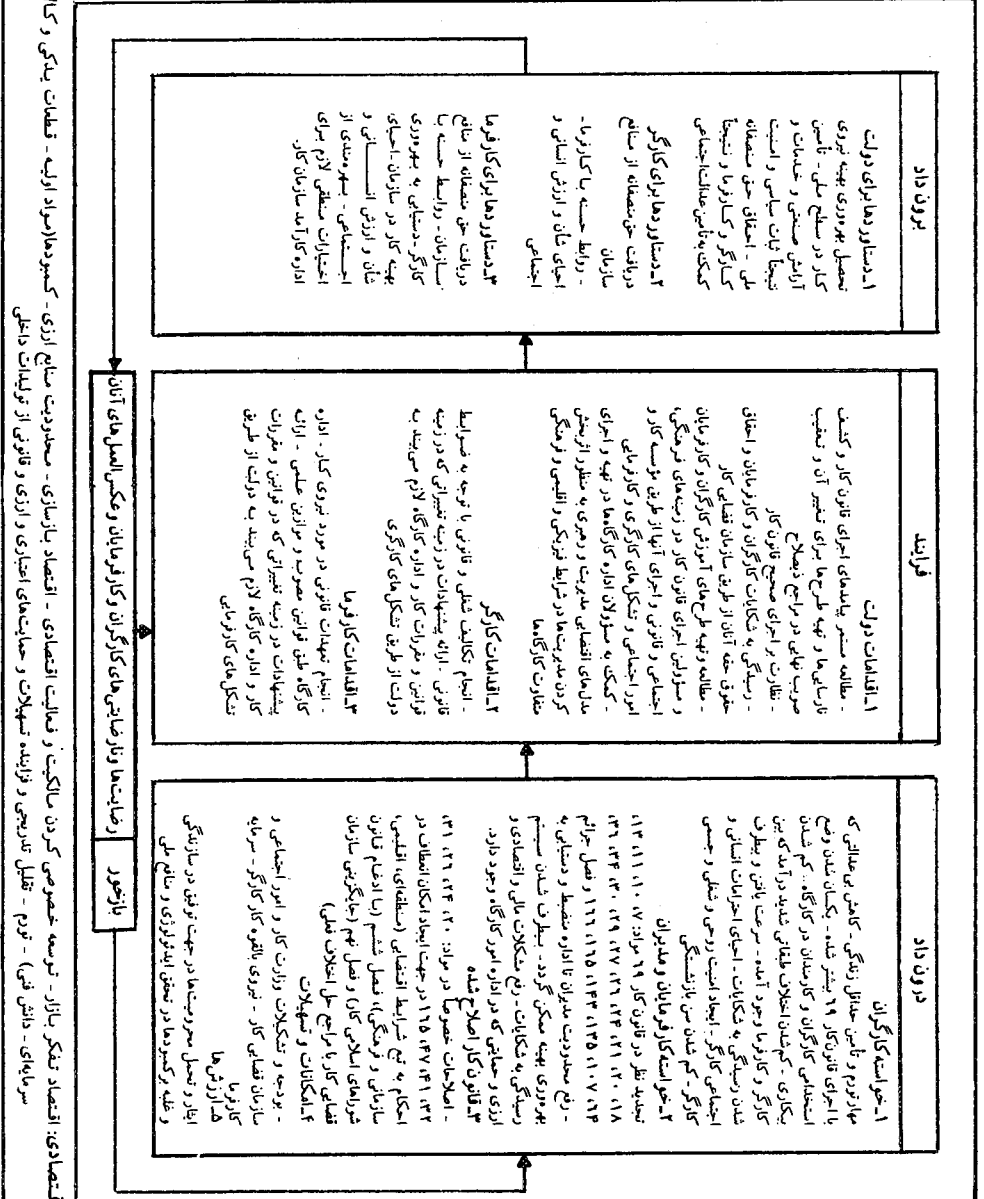 درون داد
۱ـ خواسته کارگران
مهار تورم و تأمین حداقل زندگی ـ کاهش بی‌عدالتی که
با اجرای قانون کار ۶۹ بیشتر شده ـ یکسان شدن وضع
استخدامی کارگران و کارمندان در کارگاه. کم شدن
بیکاری ـ کم شدن اختلاف طبقاتی شدید در آمد که بین
کارگر و کارفرما وجود آمده ـ سرعت یافتن و بیطرف
شدن رسیدگی به شکایات ـ احیای احترامات انسانی و
اجتماعی کارگر ـ ایجاد امنیت روحی و شغلی و جسمی
کارگر ـ کم شدن سن بازنشستگی
۲ـ خواسته کارفرمایان و مدیران
تجدید نظر در قانون کار ۶۹ مواد: ۷، ۱۰، ۱۱، ۱۳،
۱۸، ۲۰، ۲۱، ۲۴، ۲۷، ۲۹، ۳۰، ۳۴، ۳۶،
۶۴، ۱۰۷، ۱۳۵، ۱۴۳، ۱۶۵، ۱۶۶ و فصل جرائم
ـ رفع محدودیت مدیران تا اداره منضبط و دستیابی به
بهره‌وری بهینه ممکن گردد ـ بیطرف شدن سیستم
رسیدگی به شکایات ـ رفع مشکلات مالی و اقتصادی و
ارزی و حمایتی که در اداره امور کارگاه وجود دارد.
۳ـ قانون کار اصلاح شده
ـ اصلاحات خصوصاً در مواد: ۲۰، ۲۴، ۲۶، ۳۱،
۳۲، ۴۱، ۴۷، ۱۶۵ در جهت ایجاد امکان انعطاف در
احکام به تبع شرایط اقتضایی (منطقه‌ای، اقلیمی،
سازمانی و فرهنگی)، فصل ششم (با ادغام قانون
شوراهای اسلامی کار) و فصل نهم (جایگزینی سازمان
قضایی کار با مراجع حل اختلاف فعلی)
۴ـ امکانات و تسهیلات
ـ بودجه و تشکیلات وزارت کار و امور اجتماعی و
سازمان قضایی کار ـ نیروی بالقوه کار کارگر ـ سرمایه
کارفرما
۵ـ ارزش‌ها
ایثار و تحمل محرومیت‌ها در جهت توفیق در سازندگی
و غلبه بر کمبودها در تحقق ایدئولوژی و منافع ملی
فرایند
۱ـ اقدامات دولت
ـ مطالعه مستمر پیامدهای اجرای قانون کار و کشف
نارسایی‌ها و تهیه طرح‌ها برای تغییر آن و تعقیب
صویب نهایی در مراجع ذیصلاح
ـ نظارت بر اجرای صحیح قانون کار
ـ رسیدگی به شکایات کارگران و کارفرمایان و احقاق
حقوق حقه آنان از طریق سازمان قضایی کار
ـ مطالعه و تهیه طرح‌های آموزش کارگران و کارفرمایان
و مسؤولین اجرای قانون کار در زمینه‌های فرهنگی،
اجتماعی و قانونی و اجرای آنها از طریق مؤسسه کار و
امور اجتماعی و تشکل‌های کارگری و کارفرمایی
ـ کمک به مسؤولان اداره کارگاه‌ها در تهیه و اجرای
مدل‌های اقتضایی مدیریت و رهبری به منظور اثربخش
کردن مدیریت‌ها در شرایط فیزیکی و اقلیمی و فرهنگی
متفاوت کارگاه‌ها
۲ـ اقدامات کارگر
ـ انجام تکالیف شغلی و قانونی با توجه به ضوابط
قانونی ـ ارائه پیشنهادات در زمینه تغییراتی که در زمینه
قوانین و مقررات کار و اداره کارگاه لازم می‌بیند به
دولت از طریق تشکل‌های کارگری
۳ـ اقدامات کارفرما
ـ انجام تعهدات قانونی در مورد نیروی کار ـ اداره
کارگاه طبق قوانین مصوب و موازین علمی ـ ارائه
پیشنهادات در زمینه تغییراتی که در قوانین و مقررات
کار و اداره کارگاه لازم می‌بیند به دولت از طریق
تشکل‌های کارفرمایی
برون داد
۱ـ دستاوردها برای دولت
تحصیل بهره‌وری بهینه نیروی
کار در سطح ملی ـ تأمین
آرامش صنعتی و خدمات و
نتیجتاً ثبات سیاسی و امنیت
ملی ـ احقاق حق منصفانه
کارگر و کارفرما و نتیجتاً
کمک به تأمین عدالت اجتماعی
۲ـ دستاوردها برای کارگر
دریافت حق منصفانه از منافع
سازمان
ـ روابط حسنه با کارفرما ـ
احیای شأن و ارزش انسانی و
اجتماعی
۳ـ دستاوردها برای کارفرما
دریافت حق منصفانه از منافع
سازمان ـ روابط حسنه با
کارگر ـ دستیابی به بهره‌وری
بهینه کار در سازمان ـ احیای
شأن و ارزش انسانی و
اجتماعی ـ بهره‌مندی از
اختیارات منطقی لازم برای
اداره کارآمد سازمان کار.
بازخور
رضایت‌ها و نارضایتی‌های کارگران و کارفرمایان و عکس‌العمل‌های آنان
قتصادی: اقتصاد تفکر بازار ـ توسعه خصوصی کردن مالکیت و فعالیت اقتصادی ـ اقتصاد بازسازی ـ محدودیت منابع ارزی ـ کمبودها (مواد اولیه ـ قطعات یدکی و کا
سرمایه‌ای ـ دانش فنی) ـ تورم ـ تقلیل تدریجی و فزاینده تسهیلات و حمایت‌های اعتباری و ارزی و قانونی از تولیدات داخلی